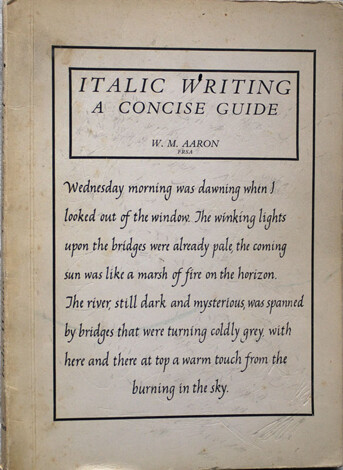 ITALIC WRITING
A CONCISE GUIDE
W. M. AARON
FRSA
Wednesday morning was dawning when I
looked out of the window. The winking lights
upon the bridges were already pale, the coming
sun was like a marsh of fire on the horizon.
The river, still dark and mysterious, was spanned
by bridges that were turning coldly grey, with
here and there at top a warm touch from the
burning in the sky.